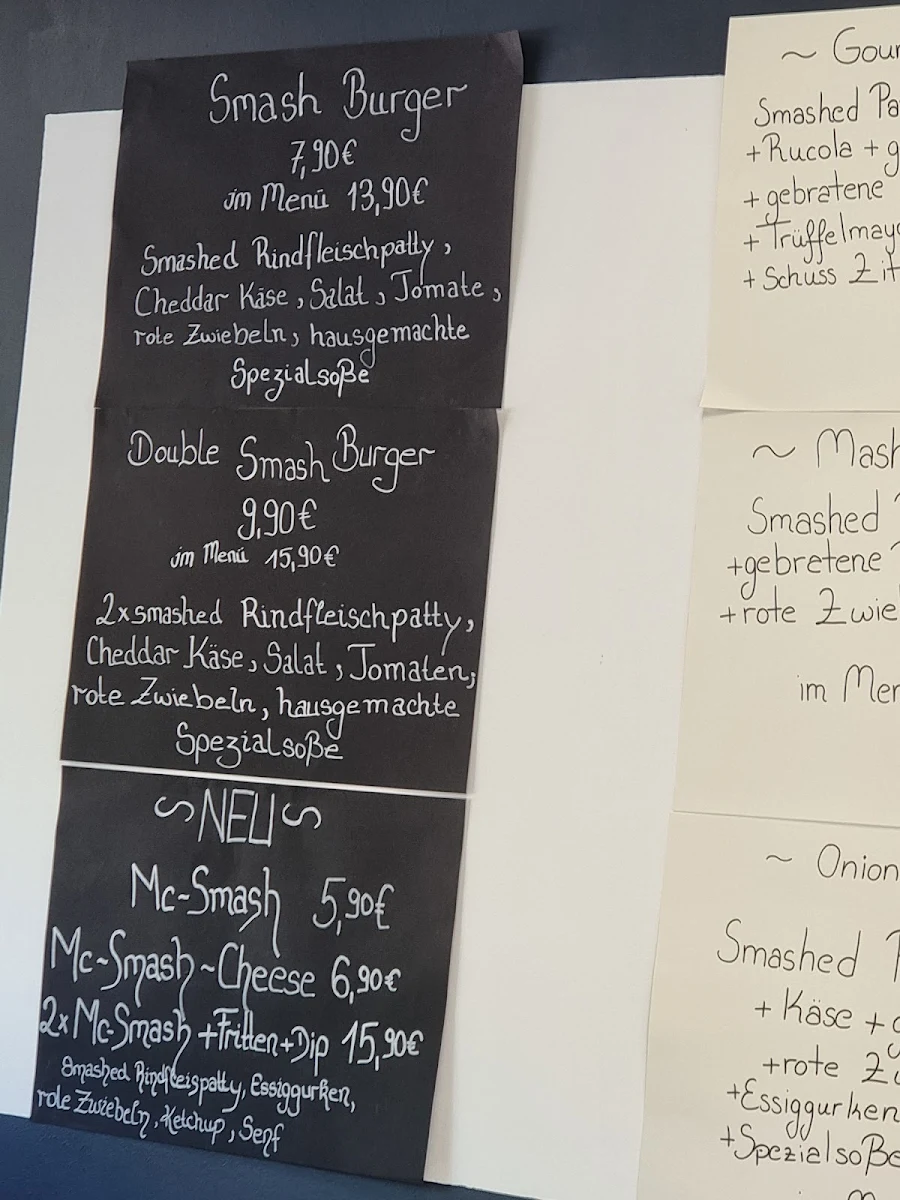 Smash Burger
7,90€
im Menü 13,90€
Smashed Rindfleischpatty,
Cheddar Käse, Salat, Tomate,
rote Zwiebeln, hausgemachte
Spezialsoße
Double Smash Burger
9,90€
im Menü 15,90€
2x smashed Rindfleischpatty,
Cheddar Käse, Salat, Tomaten,
rote Zwiebeln, hausgemachte
Spezialsoße
~NEU~
Mc-Smash 5,90€
Mc-Smash-Cheese 6,90€
2x Mc-Smash +Fritten+Dip 15,90€
Smashed Rindfleispatty, Essiggurken,
rote Zwiebeln, Ketchup, Senf
~ Gour
Smashed Pa
+Rucola + g
+ gebratene
+ Trüffelmayo
+ Schuss Zit
~ Mash
Smashed
+gebratene
+rote Zwie
im Men
~ Onion
Smashed
+ Käse +
+rote Zw
+Essiggurken
+Spezialsoße